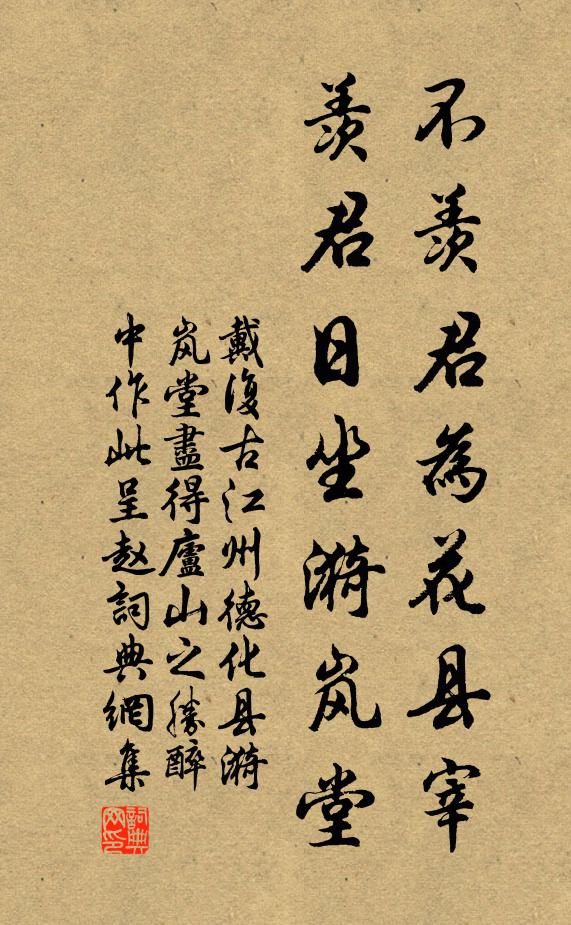 不羨君為花县宰
羨君日坐漪岚堂
戴復古江州德化县漪
岚堂盡得廬山之勝醉
中作此呈赵詞典網集
詞典網印